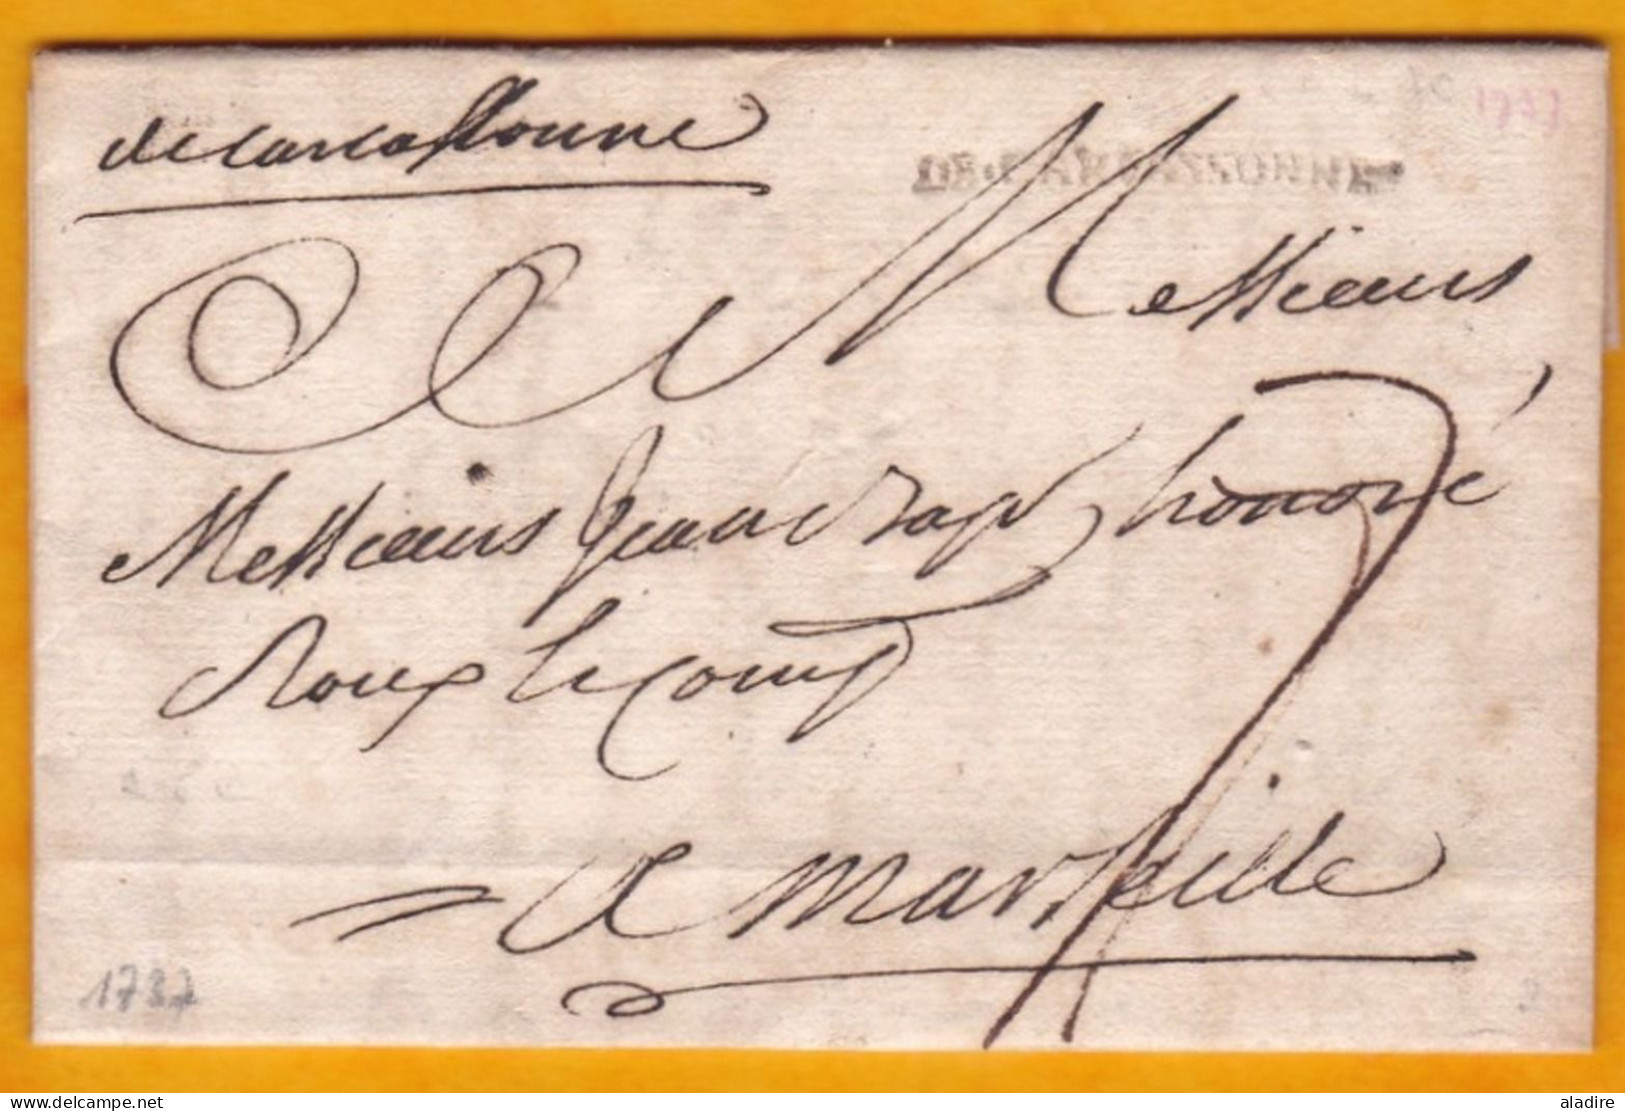 de Carcassonne
1737
DE CARCASSONNE
Messieurs
Messieurs Jean rap honoré
Roux & Comp
a Marseille
1737
aladire
www.delcampe.net